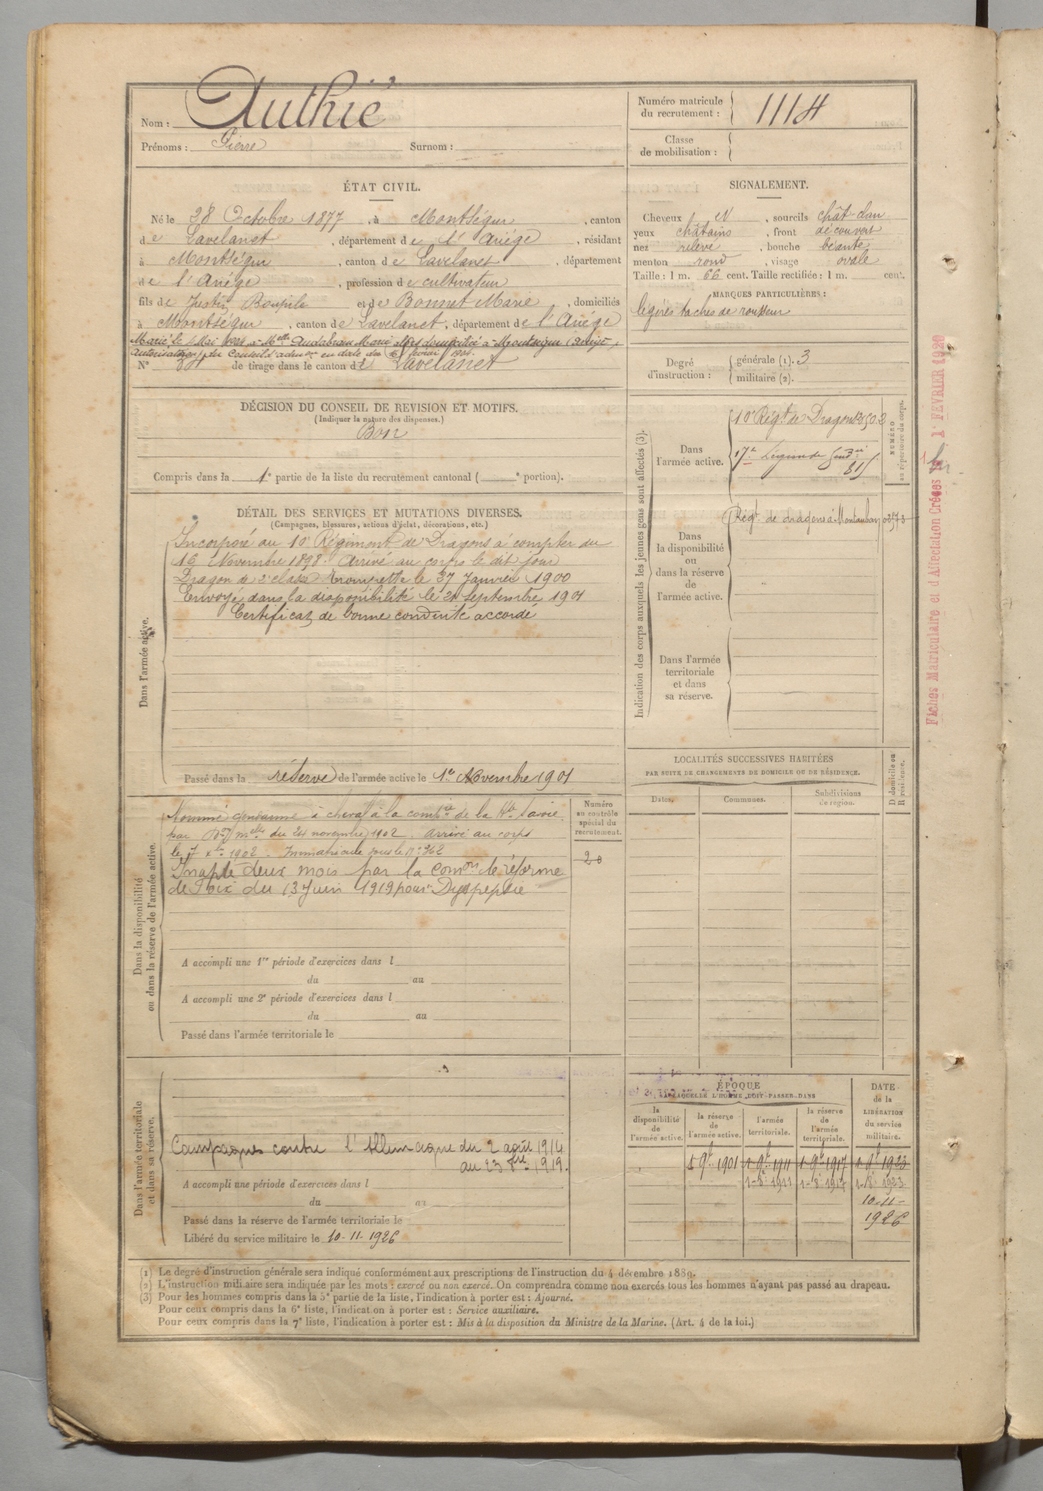 Nom : Authié
Prénoms : Pierre Surnom :
Numéro matricule du recrutement : 1114
Classe de mobilisation :
ÉTAT CIVIL.
Né le 28 Octobre 1877, à Montségur, canton
de Lavelanet, département de l'Ariège, résidant
à Montségur, canton de Lavelanet, département
de l'Ariège, profession de cultivateur
fils de Justin et de Bonnet Marie, domiciliés
à Montségur, canton de Lavelanet, département de l'Ariège
Marié le Mai à Melle Marie domiciliée à Montségur (Ariège)
autorisation du Conseil d'admon en date du février
N° 34 de tirage dans le canton de Lavelanet
SIGNALEMENT.
Cheveux N, sourcils chât
yeux châtains, front découvert
nez relevé, bouche béante
menton rond, visage ovale
Taille : 1 m. 66 cent. Taille rectifiée : 1 m. cent.
MARQUES PARTICULIÈRES :
légères taches de rousseur
Degré d'instruction : générale (1). 3
militaire (2).
DÉCISION DU CONSEIL DE REVISION ET MOTIFS.
(Indiquer la nature des dispenses.)
Bon
Compris dans la 1e partie de la liste du recrutement cantonal ( e portion).
DÉTAIL DES SERVICES ET MUTATIONS DIVERSES.
(Campagnes, blessures, actions d'éclat, décorations, etc.)
Dans l'armée active.
Incorporé au 10e Régiment de Dragons à compter du
16 Novembre 1898. Arrivé au corps le dit jour
Dragon de 2e classe trompette le Janvier 1900
Envoyé dans la disponibilité le 21 septembre 1901
Certificat de bonne conduite accordé
Passé dans la réserve de l'armée active le 1er Novembre 1901
Indication des corps auxquels les jeunes gens sont affectés (3).
Dans l'armée active.
10e Régt de Dragons
17e Légion de Gend
815
NUMÉRO au répertoire du corps.
Dans la disponibilité ou dans la réserve de l'armée active.
Régt de dragons à Montauban
Dans l'armée territoriale et dans sa réserve.
Fiches Matriculaire et d'Affectation Créées le 1er FEVRIER 1920
LOCALITÉS SUCCESSIVES HABITÉES
PAR SUITE DE CHANGEMENTS DE DOMICILE OU DE RÉSIDENCE.
Dates. Communes. Subdivisions de région. D domicile ou R résidence.
Dans la disponibilité ou dans la réserve de l'armée active.
Nommé gendarme à cheval à la comie de la Hte Savoie
par Don melle du 24 novembre 1902. Arrivé au corps
le 7 Xbre 1902. Immatriculé sous le N° 362
Inapte deux mois par la comon de réforme
de Foix du 13 Juin 1919 pour Dyspepsie
Numéro au contrôle spécial du recrutement.
A accompli une 1re période d'exercices dans l
du au
A accompli une 2e période d'exercices dans l
du au
Passé dans l'armée territoriale le
Dans l'armée territoriale et dans sa réserve.
Campagnes contre l'Allemagne du 2 août 1914
au 23 1919.
A accompli une période d'exercices dans l
du au
Passé dans la réserve de l'armée territoriale le
Libéré du service militaire le 10-11-1926
ÉPOQUE
À LAQUELLE L'HOMME DOIT PASSER DANS
la disponibilité de l'armée active. la réserve de l'armée active. l'armée territoriale. la réserve de l'armée territoriale. DATE de la LIBÉRATION du service militaire.
1901 1911 1917 1923
1911 1917 1923
10-11-
1926
(1) Le degré d'instruction générale sera indiqué conformément aux prescriptions de l'instruction du 4 décembre 1889.
(2) L'instruction militaire sera indiquée par les mots : exercé ou non exercé. On comprendra comme non exercés tous les hommes n'ayant pas passé au drapeau.
(3) Pour les hommes compris dans la 5e partie de la liste, l'indication à porter est : Ajourné.
Pour ceux compris dans la 6e liste, l'indication à porter est : Service auxiliaire.
Pour ceux compris dans la 7e liste, l'indication à porter est : Mis à la disposition du Ministre de la Marine. (Art. 4 de la loi.)